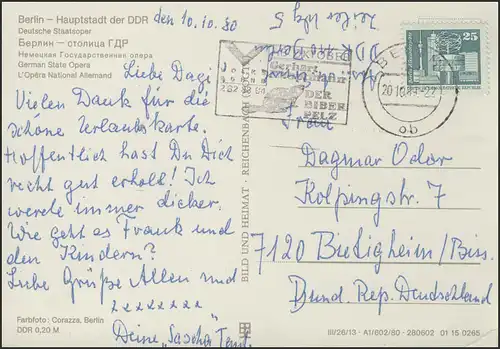 Berlin – Hauptstadt der DDR
Deutsche Staatsoper
Берлин – столица ГДР
Немецкая Государственная опера
German State Opera
L'Opéra National Allemand
den 10.10.80
Liebe Dagi,
Vielen Dank für die
schöne Urlaubskarte.
Hoffentlich hast Du Dich
recht gut erholt! Ich
werde immer dicker.
Wie geht es Frank und
den Kindern?
Liebe Grüße Allen und
xxxxxxxx
Deine "Sascha"
Farbfoto: Corazza, Berlin
DDR 0,20 M
BILD UND HEIMAT · REICHENBACH (VOGTL)
OKTOBER
Gerhart
DER
BIBER
PELZ
BE
20.10
ob
25
Frau
Dagmar Odar
Kolpingstraße 7
7120 Bietigheim/Biss.
Bund. Rep. Deutschland
III/26/13 · A1/602/80 · 280602 01 15 0265